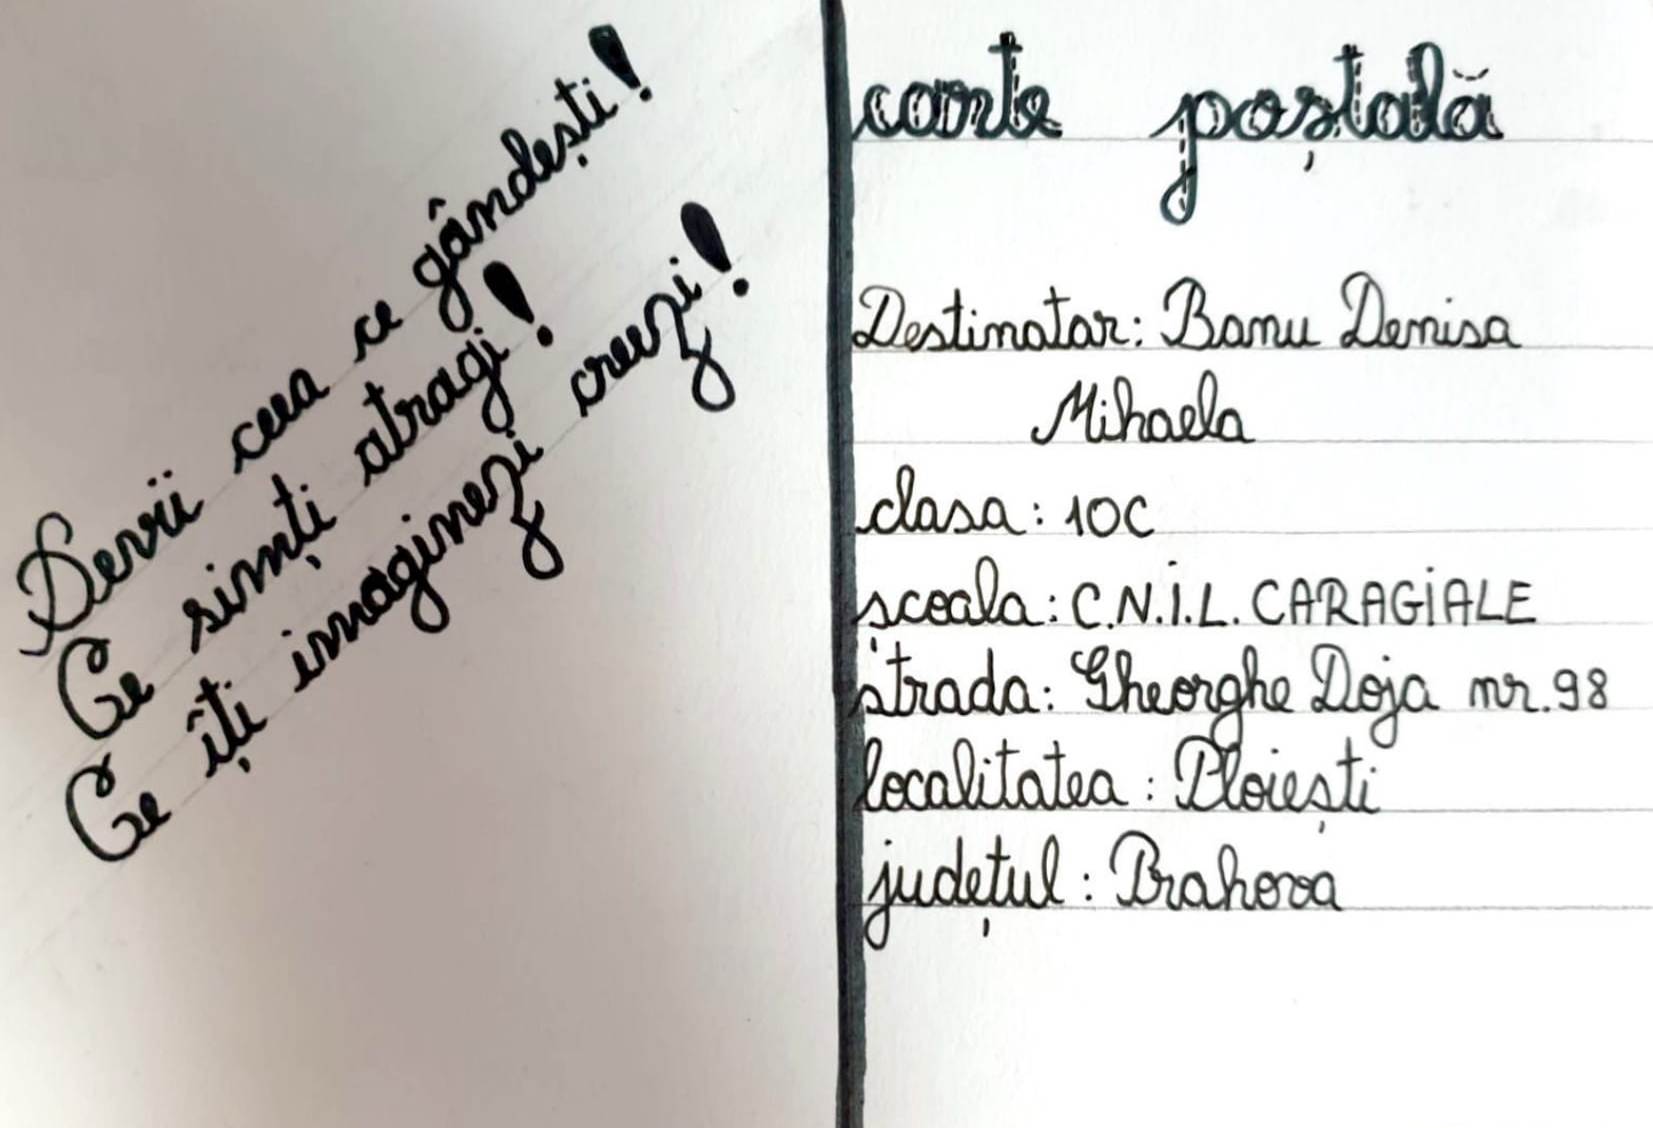 Devii ceea ce gândești!
Ce simți atragi!
Ce îți imaginezi creezi!
carte poștală
Destinatar: Banu Denisa
Mihaela
clasa: 10C
școala: C.N.I.L. CARAGIALE
strada: Gheorghe Doja nr. 98
localitatea: Ploiești
județul: Prahova